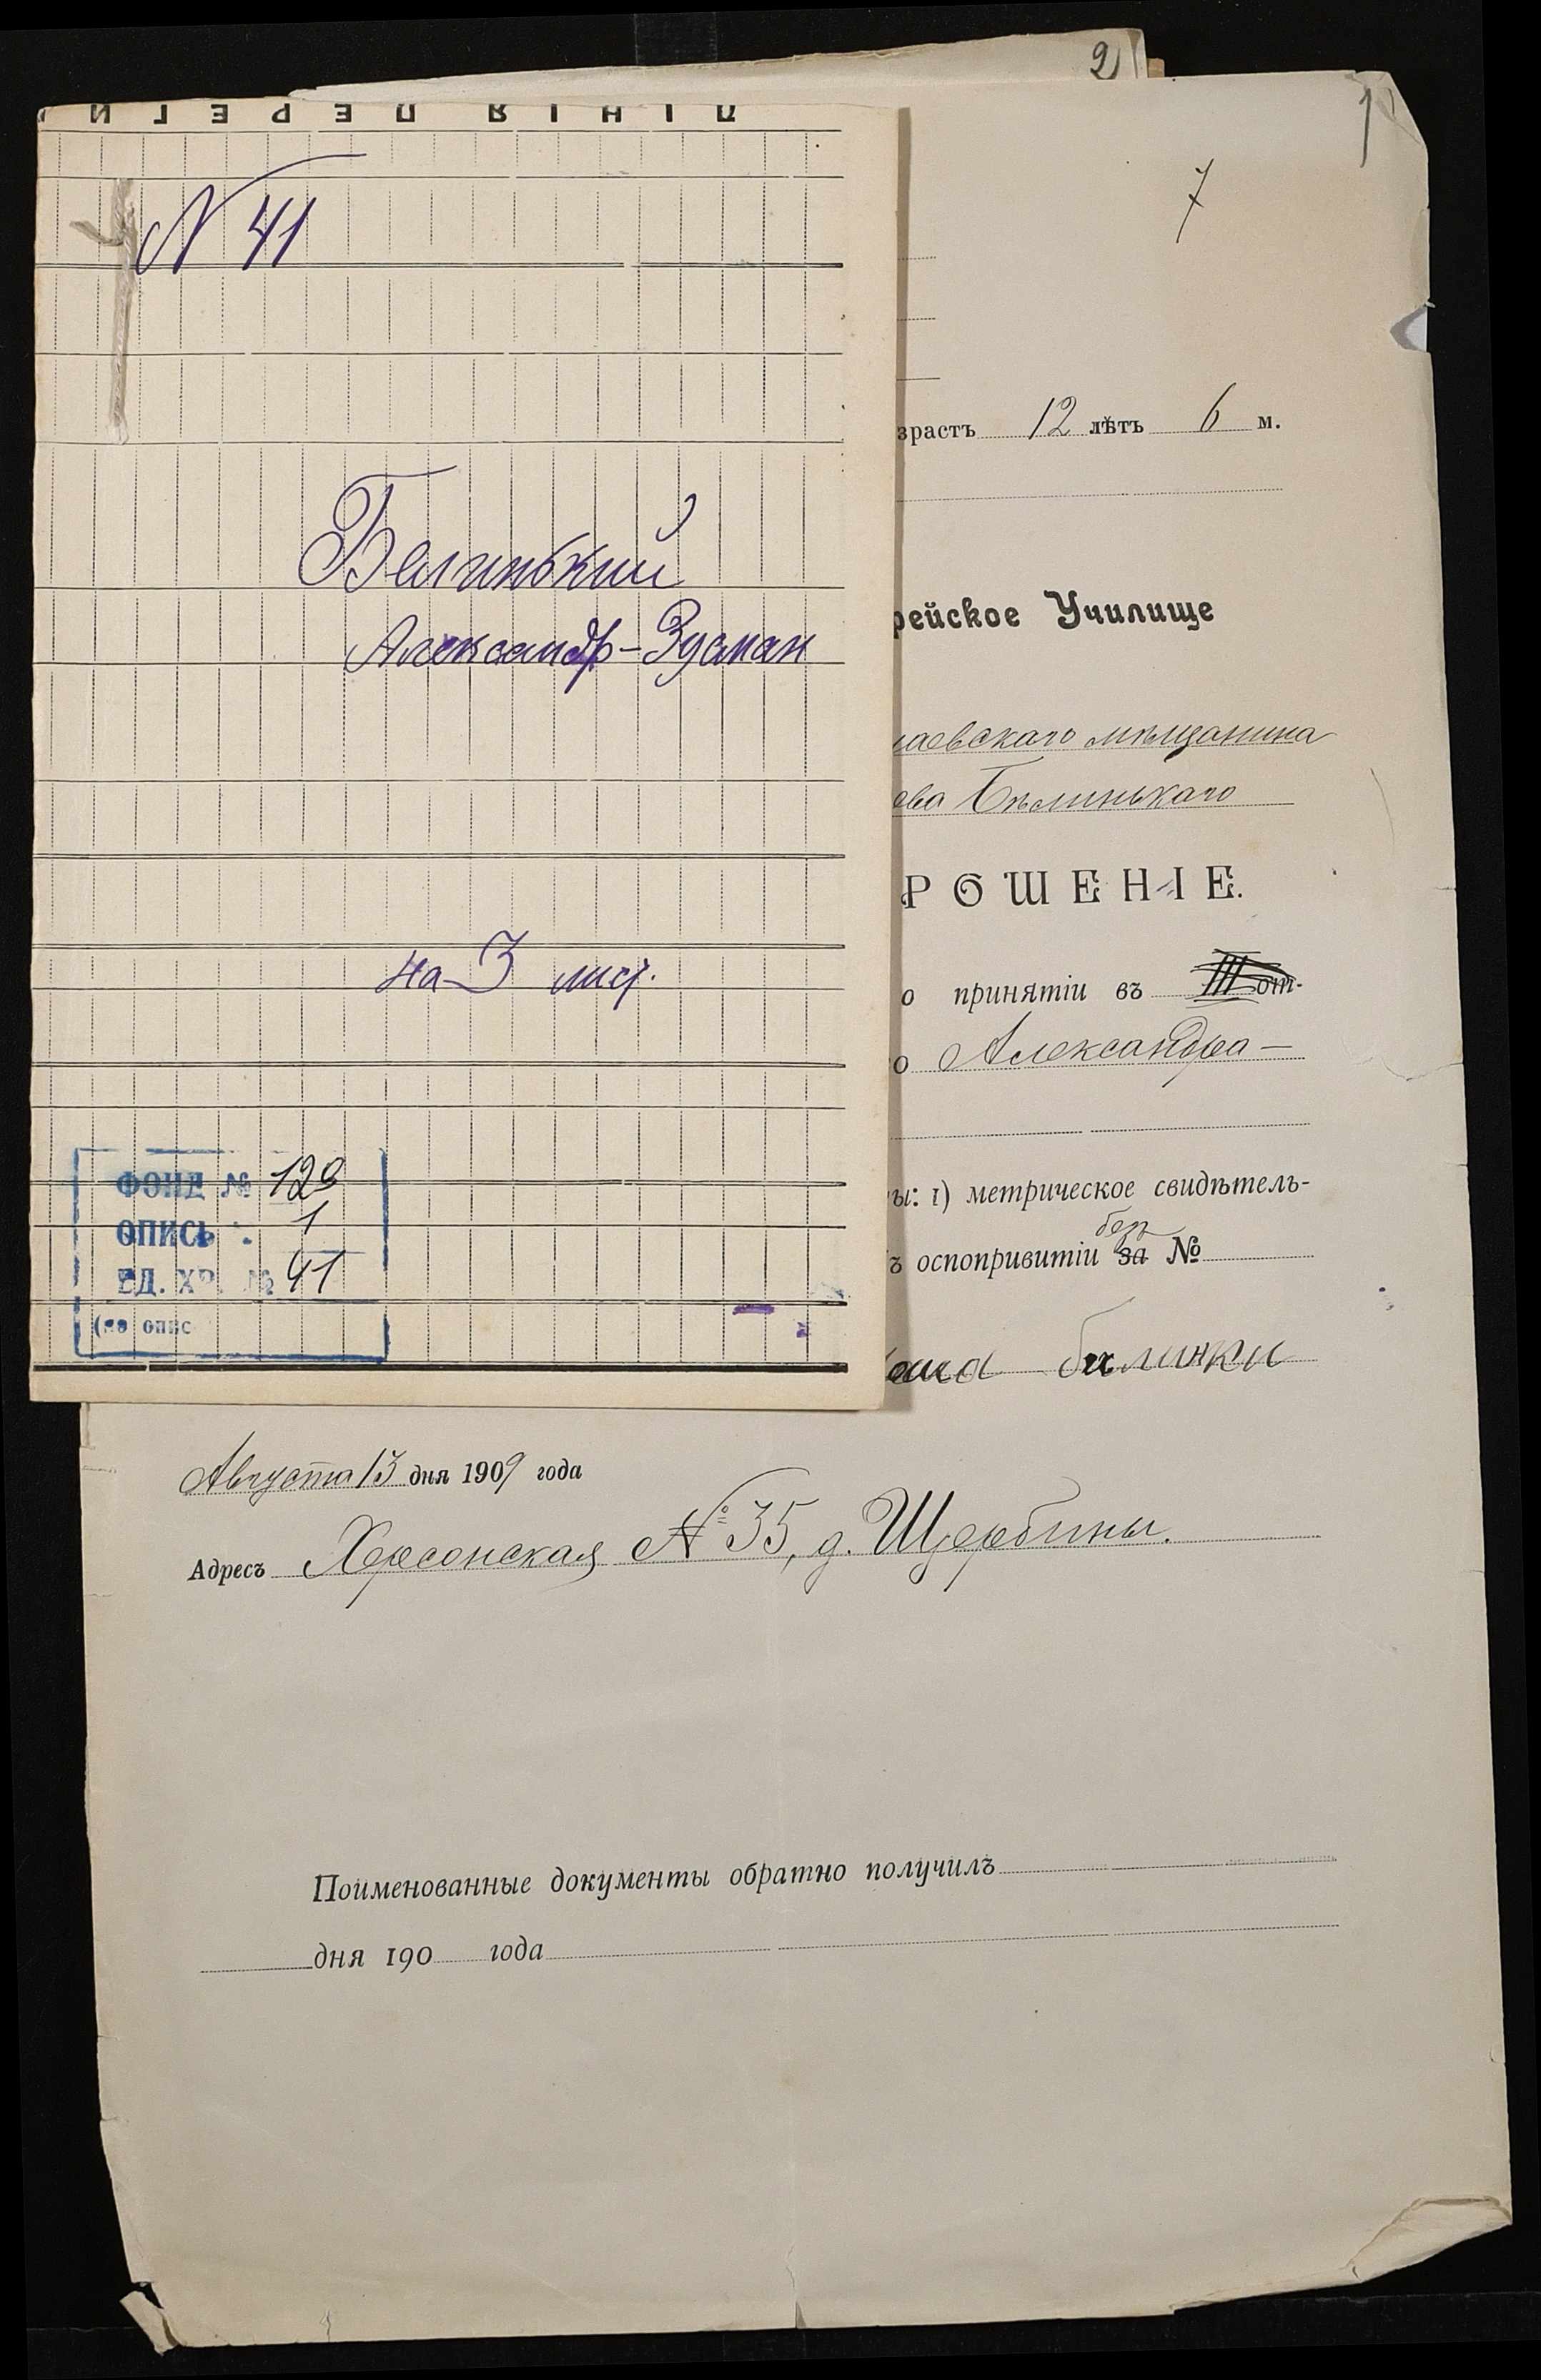 2
1
7
N 41
Белинький
Александр-Зусман
на 3 лист.
ФОНД № 129
ОПИСЬ 1
ЕД. ХР. № 41
(по опис
зрастъ 12 лѣтъ 6 м.
рейское Училище
аевскаго мѣщанина
ева Бѣлинькаго
РОШЕНІЕ.
о принятіи въ III от-
о Александра-
ы: 1) метрическое свидѣтель-
ъ оспопривитіи за без №
билинки
Августа 13 дня 1909 года
Адресъ Херсонская № 35, д. Щербины.
Поименованные документы обратно получилъ
дня 190 года